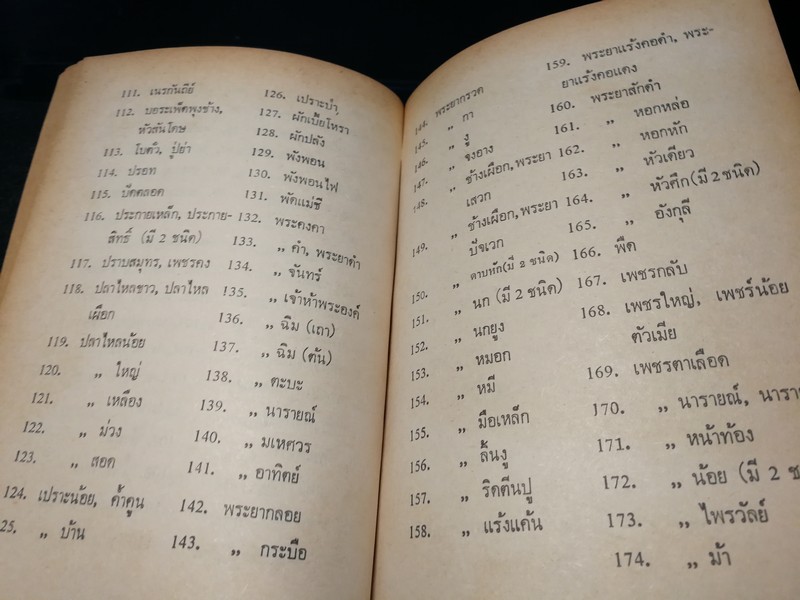 111. เนรกันถีย์
112. บอระเพ็ดพุงช้าง,
หัวสันโดษ
113. โบตัว, ปู่ย่า
114. ปรอท
115. บีดตลอด
116. ประกายเหล็ก, ประกาย-
สิทธิ์ (มี 2 ชนิด)
117. ปราบสมุทร, เพชรคง
118. ปลาไหลขาว, ปลาไหล
เผือก
119. ปลาไหลน้อย
120. „ ใหญ่
121. „ เหลือง
122. „ ม่วง
123. „ สอด
124. เปราะน้อย, ค้ำคูน
25. „ บ้าน
126. เปราะป่า,
127. ผักเบี้ยโหรา
128. ผักปลัง
129. พังพอน
130. พังพอนไฟ
131. พัดแม่ชี
132. พระคงคา
133. „ คำ, พระยาคำ
134. „ จันทร์
135. „ เจ้าห้าพระองค์
136. „ ฉิม (เถา)
137. „ ฉิม (ต้น)
138. „ ตะบะ
139. „ นารายณ์
140. „ มเหศวร
141. „ อาทิตย์
142. พระยากลอย
143. „ กระบือ
144. พระยากรวด
145. „ กา
146. „ งู
147. „ จงอาง
148. „ ช้างเผือก, พระยา
เสวก
149. „ ช้างเผือก, พระยา
ปัจเวก
150. „ ดาบหัก (มี 2 ชนิด)
151. „ นก (มี 2 ชนิด)
152. „ นกยูง
153. „ หมอก
154. „ หมี
155. „ มือเหล็ก
156. „ ลิ้นงู
157. „ ริดตีนปู
158. „ แร้งแค้น
159. พระยาแร้งคอดำ, พระ-
ยาแร้งคอแดง
160. พระยาสักดำ
161. „ หอกหล่อ
162. „ หอกหัก
163. „ หัวเดียว
164. „ หัวศึก (มี 2 ชนิด)
165. „ อังกุลี
166. พืด
167. เพชรกลับ
168. เพชรใหญ่, เพชร์น้อย
ตัวเมีย
169. เพชรตาเลือด
170. „ นารายณ์,
171. „ หน้าท้อง
172. „ น้อย (มี 2
173. „ ไพรวัลย์
174. „ ม้า